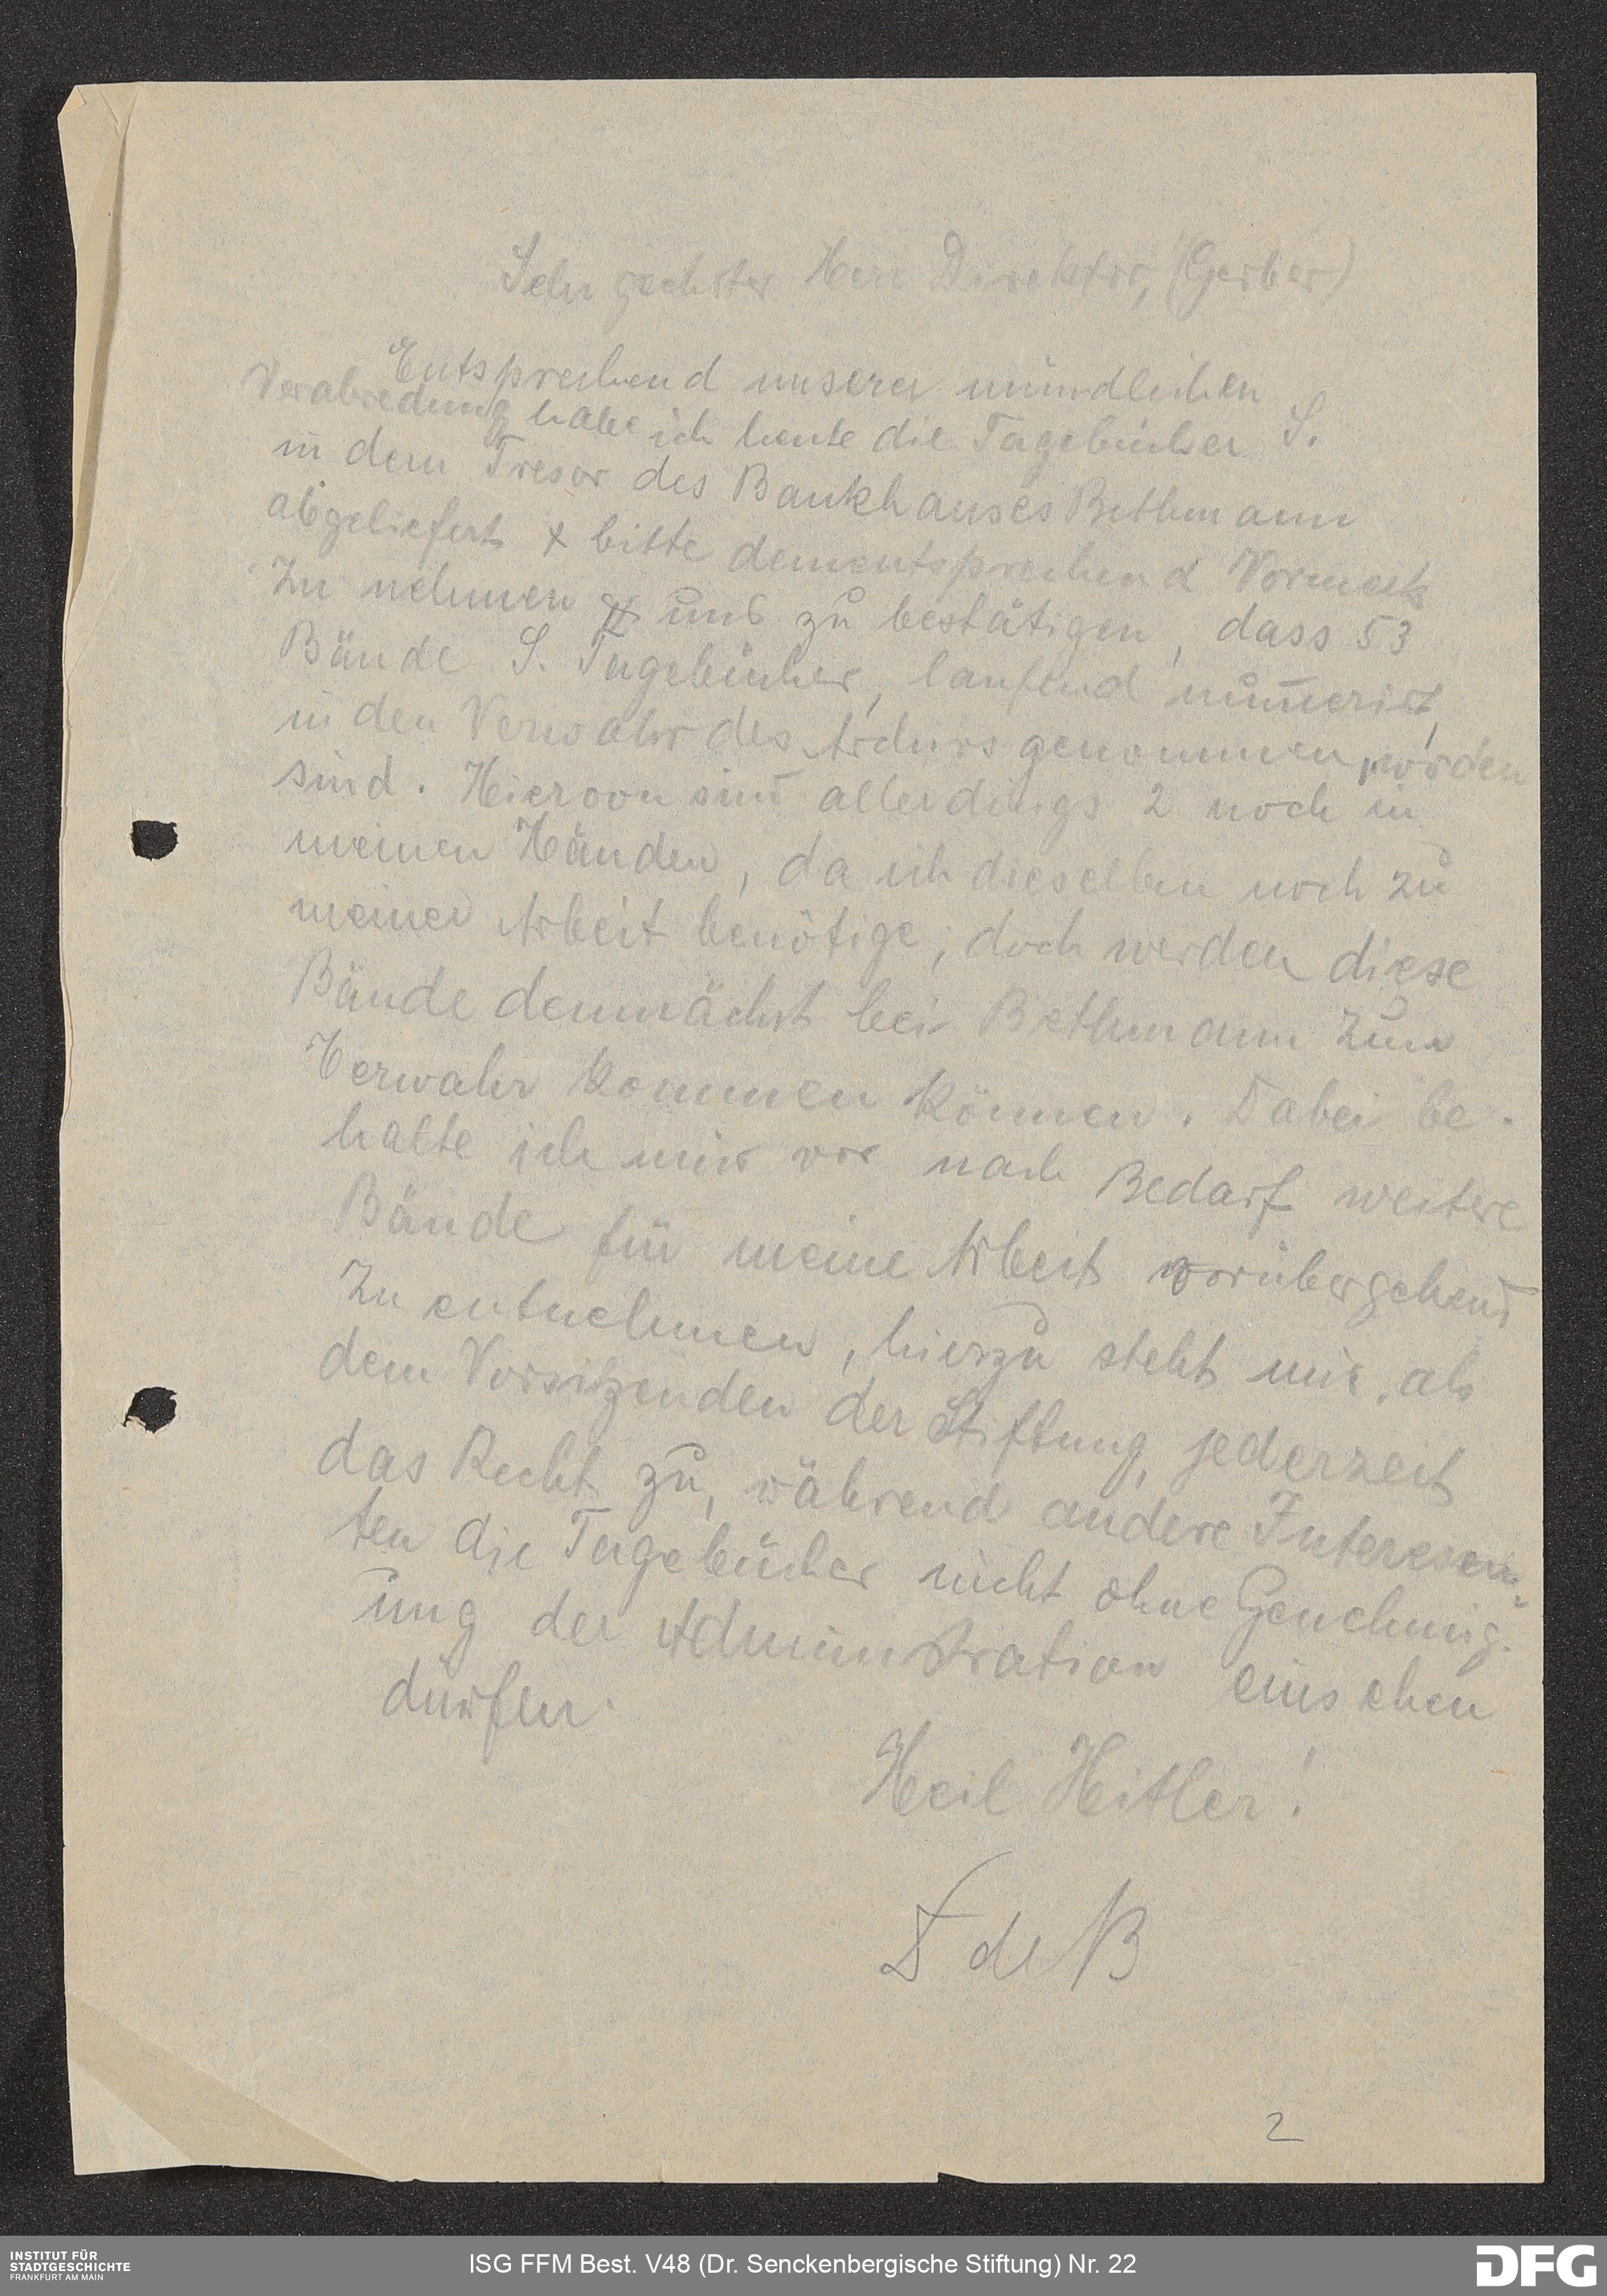 Sehr geehrter Herr Direktor, (Gerber)
Entsprechend unserer mündlichen
Verabredung habe ich heute die Tagebücher S.
in dem Tresor des Bankhauses Bethmann
abgeliefert + bitte dementsprechend Vormerk
zu nehmen & uns zu bestätigen, dass 53
Bände S. Tagebücher, laufend numeriert,
in den Verwahr des Archivs genommen worden
sind. Hiervon sind allerdings 2 noch in
meinen Händen, da ich dieselben noch zu
meiner Arbeit benötige; doch werden diese
Bände demnächst bei Bethmann zum
Verwahr kommen können. Dabei be-
halte ich mir vor nach Bedarf weitere
Bände für meine Arbeit vorübergehend
zu entnehmen, hierzu steht mir, als
dem Vorsitzenden der Stiftung, jederzeit
das Recht zu, während andere Interessen-
ten die Tagebücher nicht ohne Genehmig-
ung der Administration einsehen
dürfen.
Heil Hitler!
de B
2
INSTITUT FÜR
STADTGESCHICHTE
FRANKFURT AM MAIN
ISG FFM Best. V48 (Dr. Senckenbergische Stiftung) Nr. 22
DFG